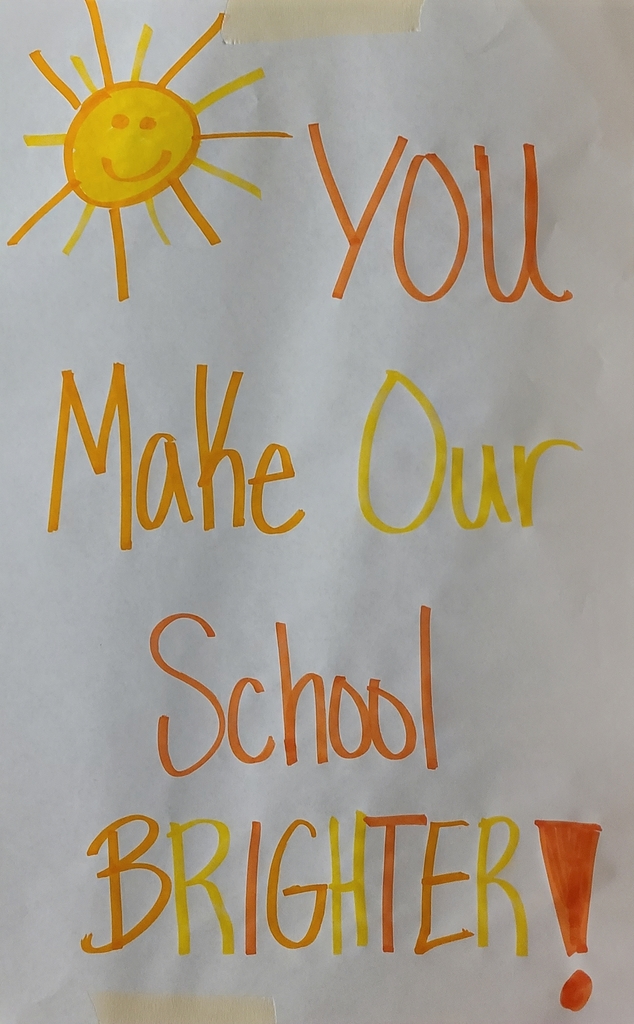 YOU
Make Our
School
BRIGHTER!